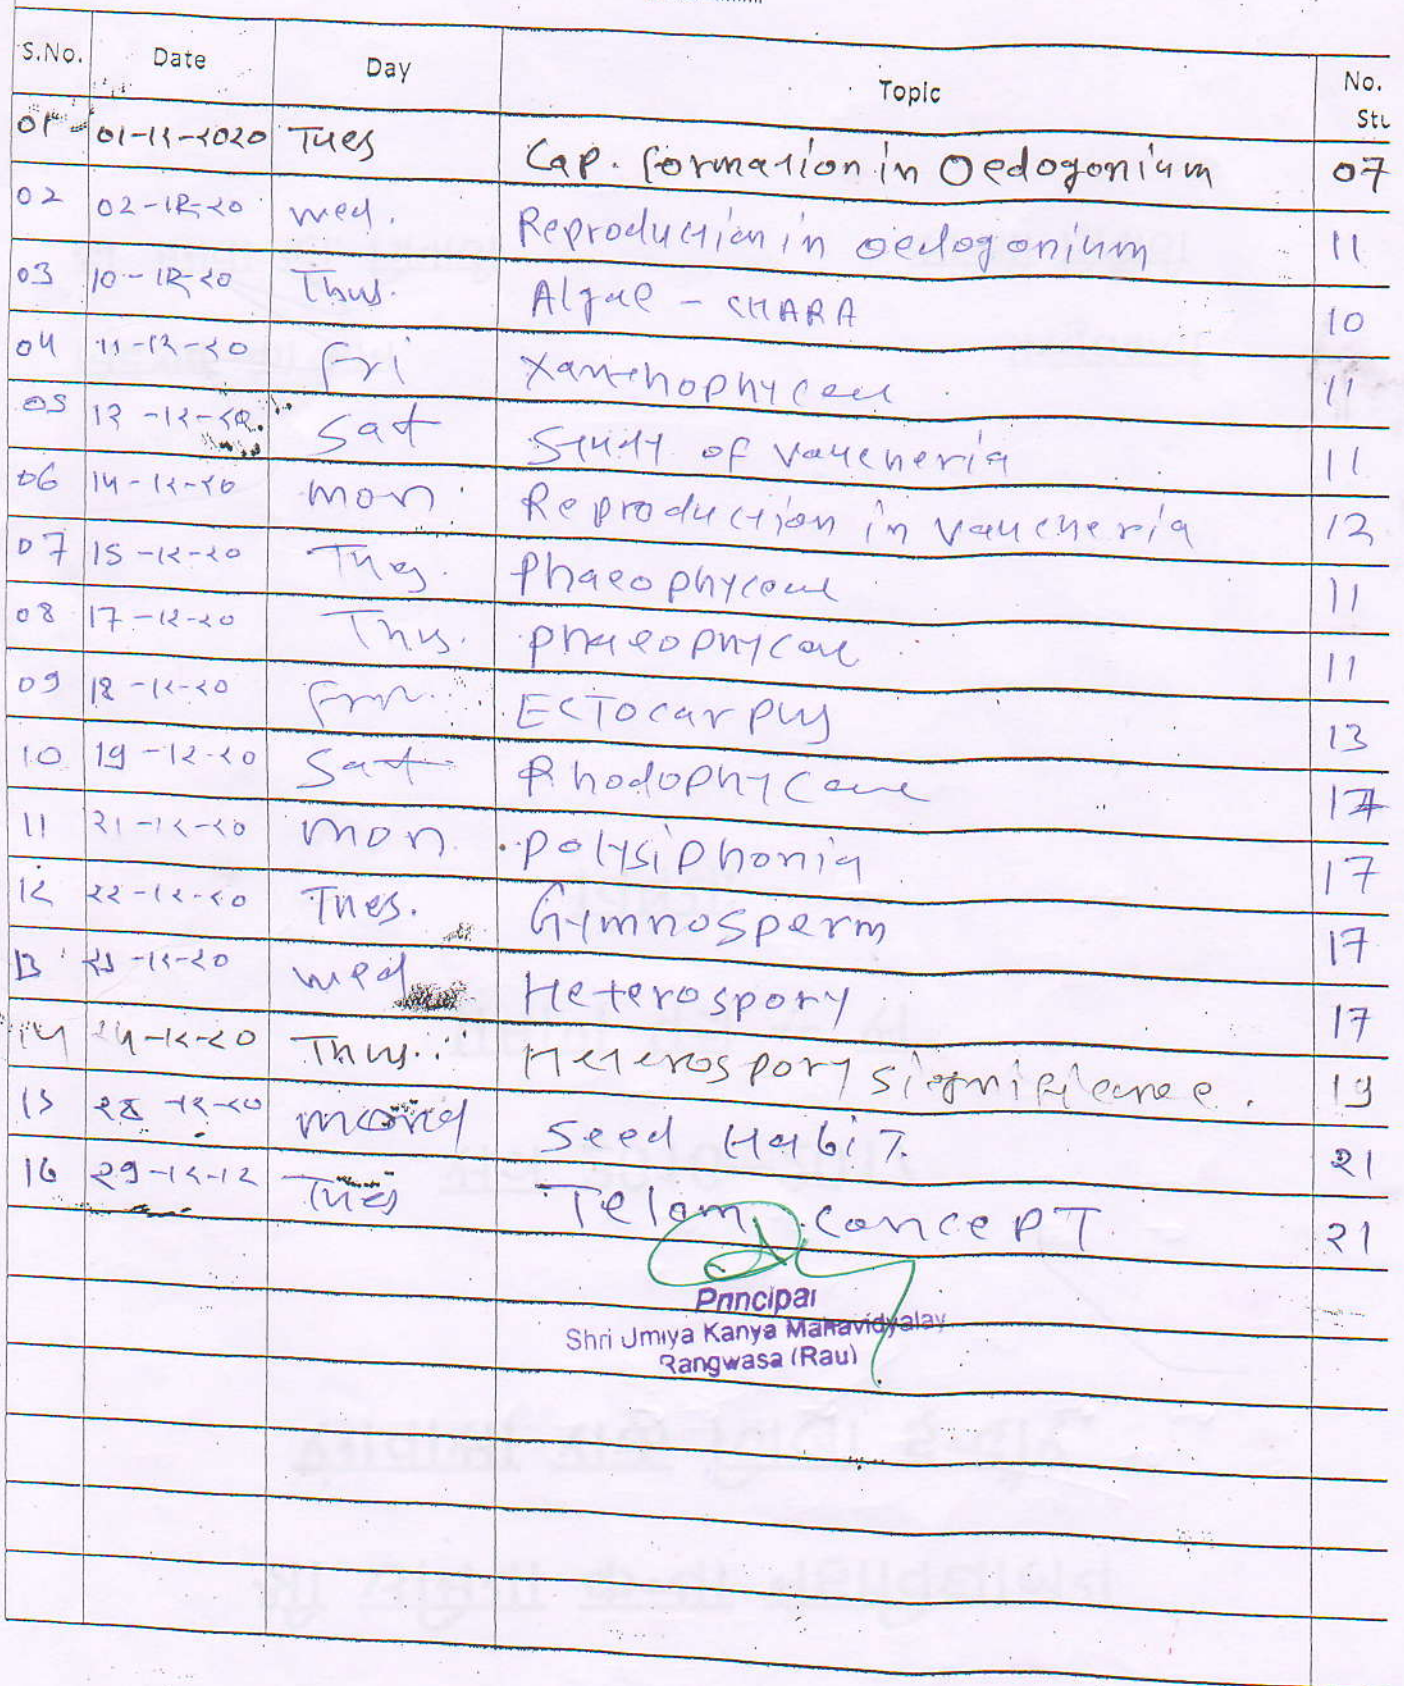 S.No. Date Day Topic No. Stu
01 01-12-2020 Tues Cap. formation in Oedogonium 07
02 02-12-20 wed. Reproduction in oedogonium 11
03 10-12-20 Thus. Algae - CHARA 10
04 11-12-20 Fri Xanthophyceae 11
05 12-12-20. Sat Study of Vaucheria 11
06 14-12-20 mon. Reproduction in Vaucheria 12
07 15-12-20 Tues. Phaeophyceae 11
08 17-12-20 Thus. phaeophyceae 11
09 18-12-20 Fri. Ectocarpus 13
10 19-12-20 Sat Rhodophyceae 17
11 21-12-20 mon polysiphonia 17
12 22-12-20 Tues. Gymnosperm 17
13 23-12-20 wed Heterospory 17
14 24-12-20 Thus. Heterospory significance. 19
15 28-12-20 mond seed Habit. 21
16 29-12-12 Tues Telom concept 21
Principal
Shri Umiya Kanya Mahavidyalay
Rangwasa (Rau)